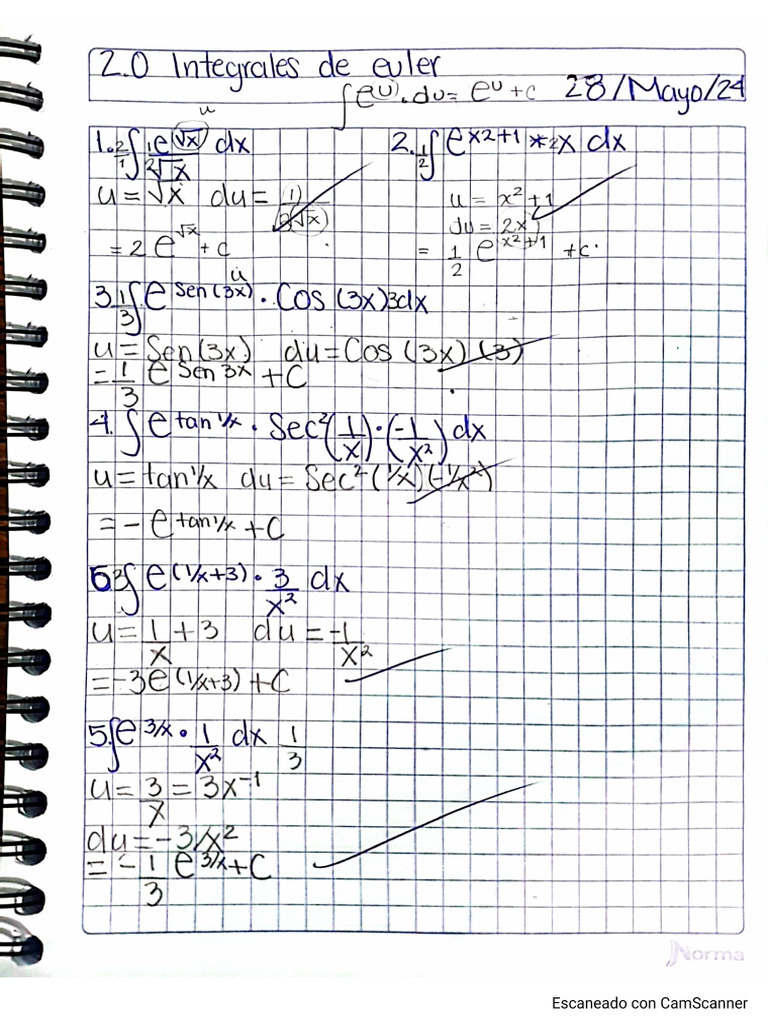 2.0 Integrales de euler
∫e(u)·du= e^u+c 28/Mayo/24
u
1. 2/1 ∫ 1e^(√x)/2√x dx 2. 1/2 ∫ e^x2+1 *2x dx
u=√x du= 1)/2(√x) u= x²+1
du= 2x
=2e^√x+c = 1/2 e^x²+1 +c.
u
3. 1/3 ∫ e^Sen(3x) · Cos (3x)3dx
u=Sen(3x) du=Cos (3x) (3)
= 1/3 e^Sen 3x + C
4. ∫ e^tan 1/x · Sec²(1/x)·(-1/x²) dx
u=tan 1/x du= Sec²(1/x)(-1/x²)
=-e^tan 1/x+C
6 3∫ e^(1/x+3) · 3/x² dx
u= 1/x +3 du= -1/x²
=-3e^(1/x+3) +C
5.∫e^3/x · 1/x² dx 1/3
u= 3/x = 3x^-1
du=-3/x²
= -1/3 e^3/x+C
Norma
Escaneado con CamScanner